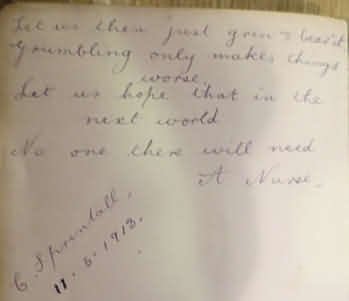 Let us then just grin & bear it,
Grumbling only makes things
worse.
Let us hope that in the
next world
No one there will need
A Nurse.
11. 5. 1913.